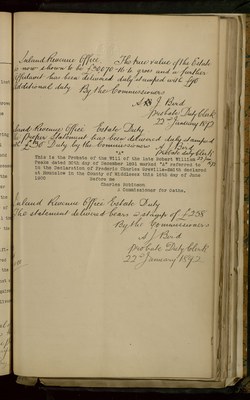 Inland Revenue Office The true value of the Estate
is now shown to be £ gross and a further
affidavit has been delivered duly stamped with £90
additional duty By the Commissioners
A J Bird
Probate Duty Clerk
22nd January 1892
Inland Revenue Office Estate Duty
A Proper Statement has been delivered duly stamped
Duty by the Commissioners A J Bird
Probate duty Clerk
This is the Probate of the Will of the late Robert William
dated 30th day of December 1891 marked "C" referred to
in the Declaration of Frederic Charles Neville-Smith declared
at in the County of Middlesex this 14th day of June
Before me
Charles Robinson
a Commissioner for Oaths.
Inland Revenue Office Estate Duty
The statement delivered bears a stamp of £238
By the Commissioners
A J Bird
Probate Duty Clerk
22nd January 1892